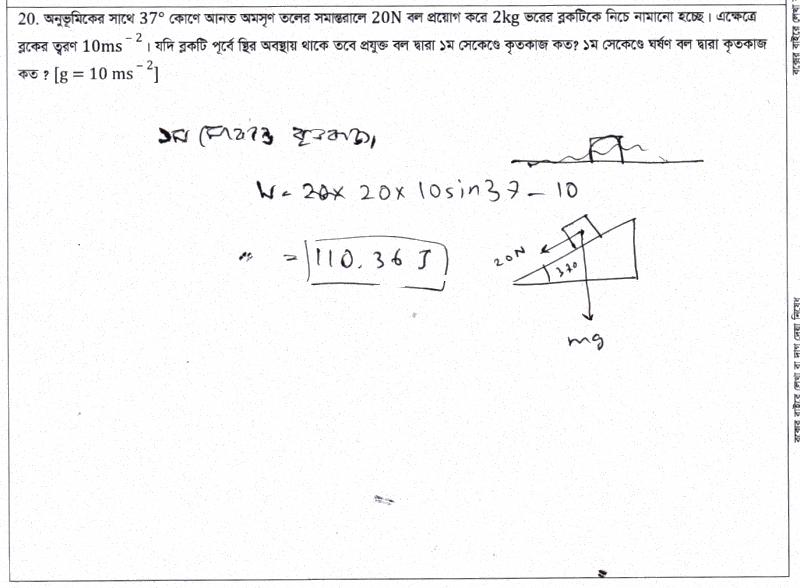 20. অনুভূমিকের সাথে 37° কোণে আনত অমসৃণ তলের সমান্তরালে 20N বল প্রয়োগ করে 2kg ভরের ব্লকটিকে নিচে নামানো হচ্ছে। এক্ষেত্রে
ব্লকের ত্বরণ 10ms⁻²। যদি ব্লকটি পূর্বে স্থির অবস্থায় থাকে তবে প্রযুক্ত বল দ্বারা ১ম সেকেন্ডে কৃতকাজ কত? ১ম সেকেন্ডে ঘর্ষণ বল দ্বারা কৃতকাজ
কত ? [g = 10 ms⁻²]
১ম সেকেন্ডে কৃতকাজ,
W = 20 × 20 × 10 sin 37 - 10
= 110.36 J
20N
37°
mg